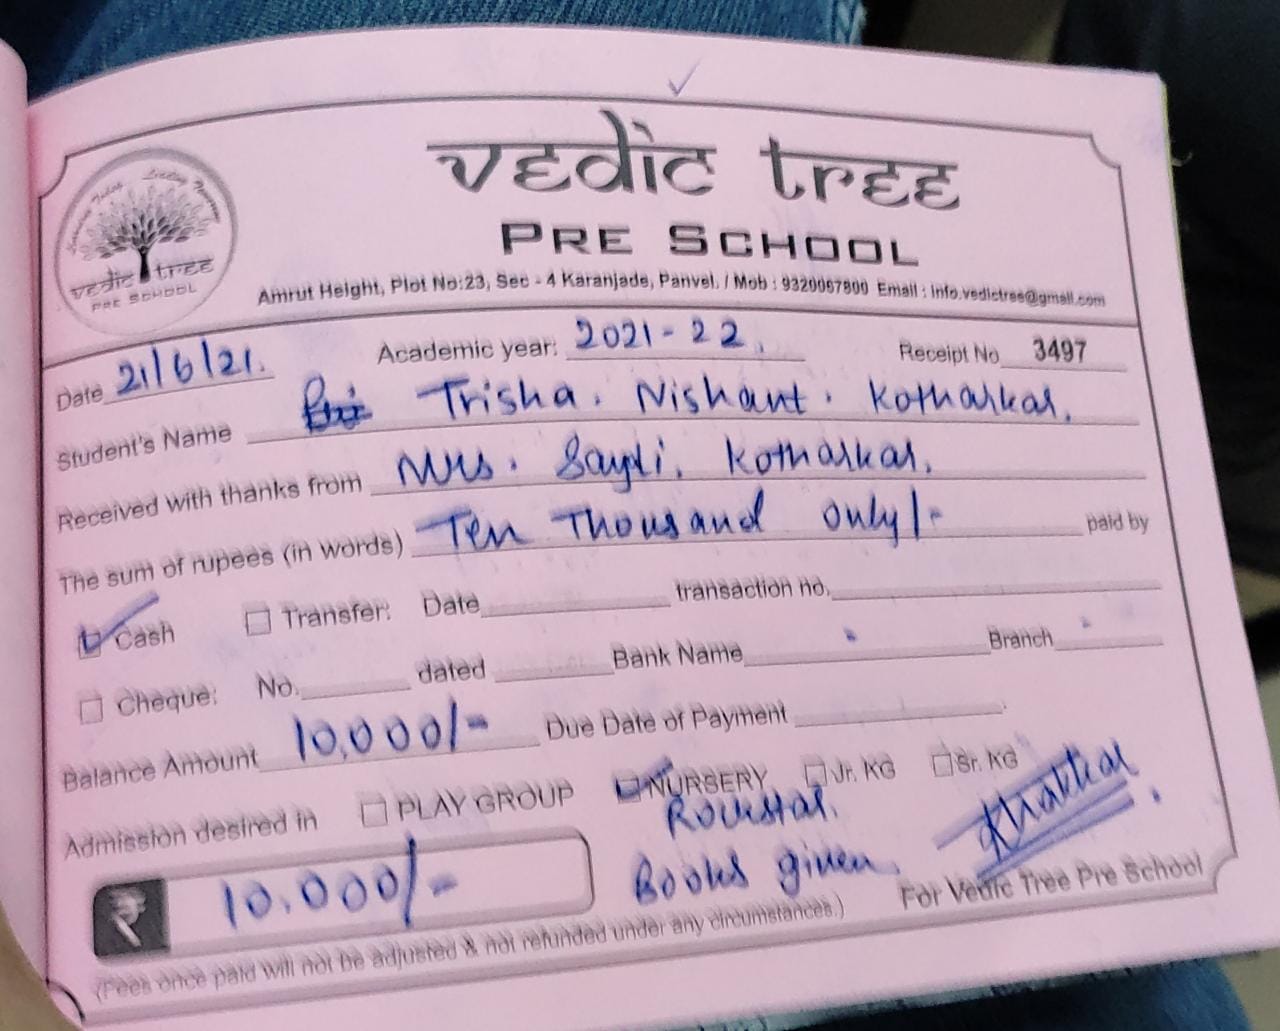 vedic tree
PRE SCHOOL
vedic tree
PRE SCHOOL
Amrut Height, Plot No:23, Sec - 4 Karanjade, Panvel. / Mob : 9320097800 Email : info.vedictree@gmail.com
Date 21/6/21. Academic year: 2021-22. Receipt No 3497
Student's Name Trisha. Nishant. Kotharkar.
Received with thanks from Mrs. Sayli. Kotharkar.
The sum of rupees (in words) Ten Thousand only/- paid by
Cash Transfer: Date transaction no.
Cheque: No. dated Bank Name Branch
Balance Amount 10,000/- Due Date of Payment
Admission desired in PLAY GROUP NURSERY Jr. KG Sr. KG
Rockstar.
₹ 10,000/- Books given
For Vedic Tree Pre School
(Fees once paid will not be adjusted & not refunded under any circumstances.)